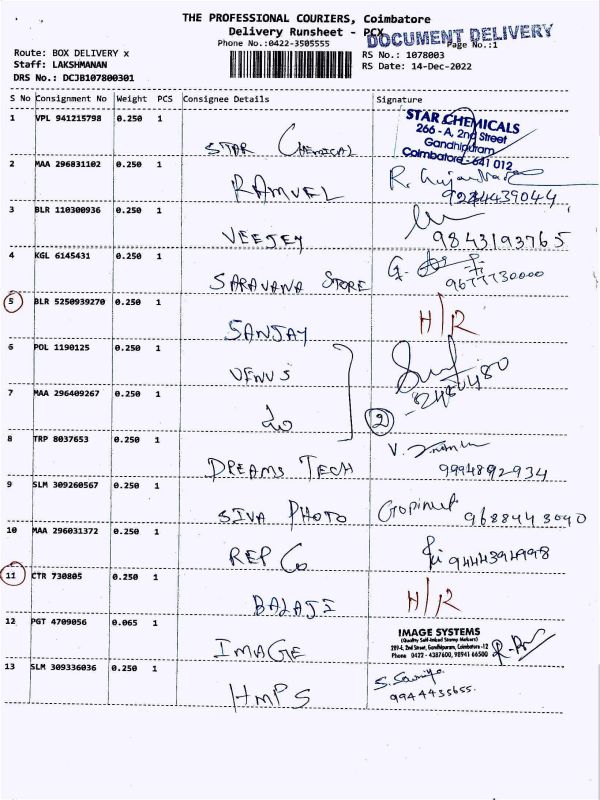 THE PROFESSIONAL COURIERS, Coimbatore
Delivery Runsheet - PCX
DOCUMENT DELIVERY
Phone No.:0422-3505555
Page No.:1
Route: BOX DELIVERY x
RS No.: 1078003
Staff: LAKSHMANAN
RS Date: 14-Dec-2022
DRS No.: DCJB107800301
S No Consignment No Weight PCS Consignee Details Signature
1 VPL 941215798 0.250 1
STAR CHEMICAL
STAR CHEMICALS
266 - A, 2nd Street
Gandhipuram
Coimbatore - 641 012
2 MAA 296831102 0.250 1
RAMVEL
R.
9244439044
3 BLR 110300936 0.250 1
VEEJEY
9843193765
4 KGL 6145431 0.250 1
SARAVANA STORE
G.
9677730000
5 BLR 5250939270 0.250 1
SANJAY
H/R
6 POL 1190125 0.250 1
VENUS
7 MAA 296409267 0.250 1
2
8 TRP 8037653 0.250 1
DREAMS TECH
V.
9994892934
9 SLM 309260567 0.250 1
SIVA PHOTO
Gopinat
9688443090
10 MAA 296031372 0.250 1
REP Co
9444394998
11 CTR 730805 0.250 1
BALAJI
H/R
12 PGT 4709056 0.065 1
IMAGE
IMAGE SYSTEMS
(Quality Self-Inked Stamp Makers)
289-E, 2nd Street, Gandhipuram, Coimbatore -12
Phone 0422 - 4387600, 98941 66500
13 SLM 309336036 0.250 1
HMPS
S.
9944435655.